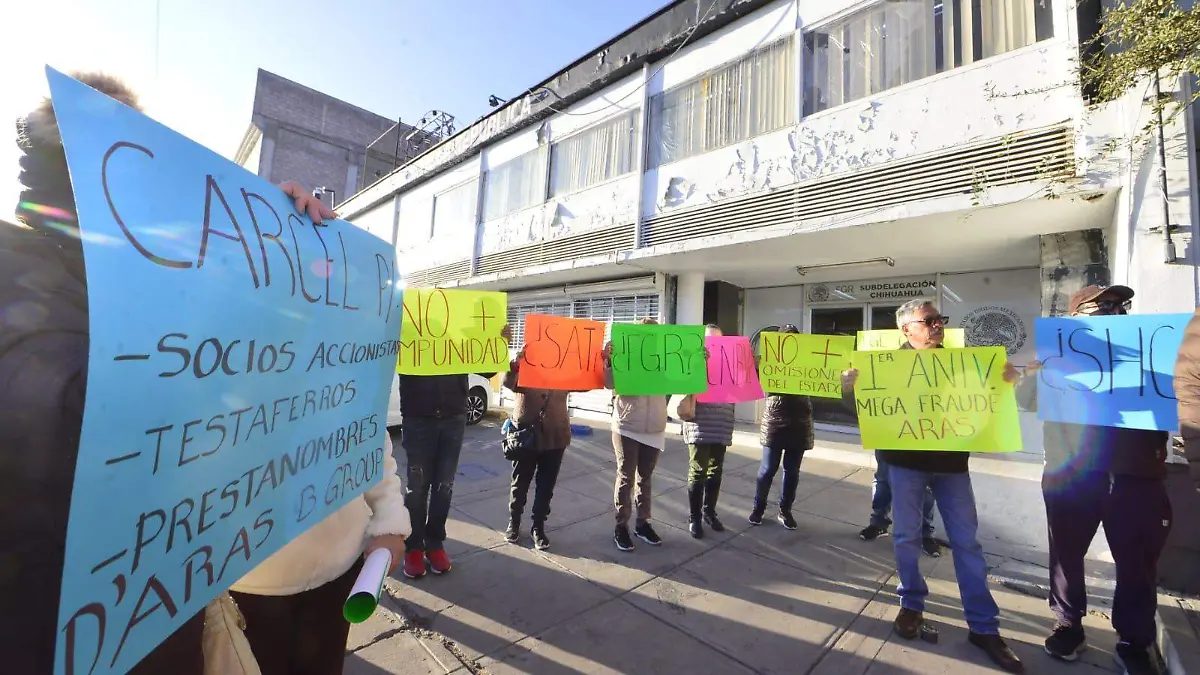 CARCEL PA
- SOCIOS ACCIONISTA
- TESTAFERROS
- PRESTANOMBRES
D'ARAS B GROUP
D'ARAS
NO +
MPUNIDAD
¿SAT?
¿FGR?
NO +
OMISIONES
DEL ESTADO
FGR SUBDELEGACIÓN
CHIHUAHUA
1ER ANIV.
MEGA FRAUDE
ARAS
¿SHC